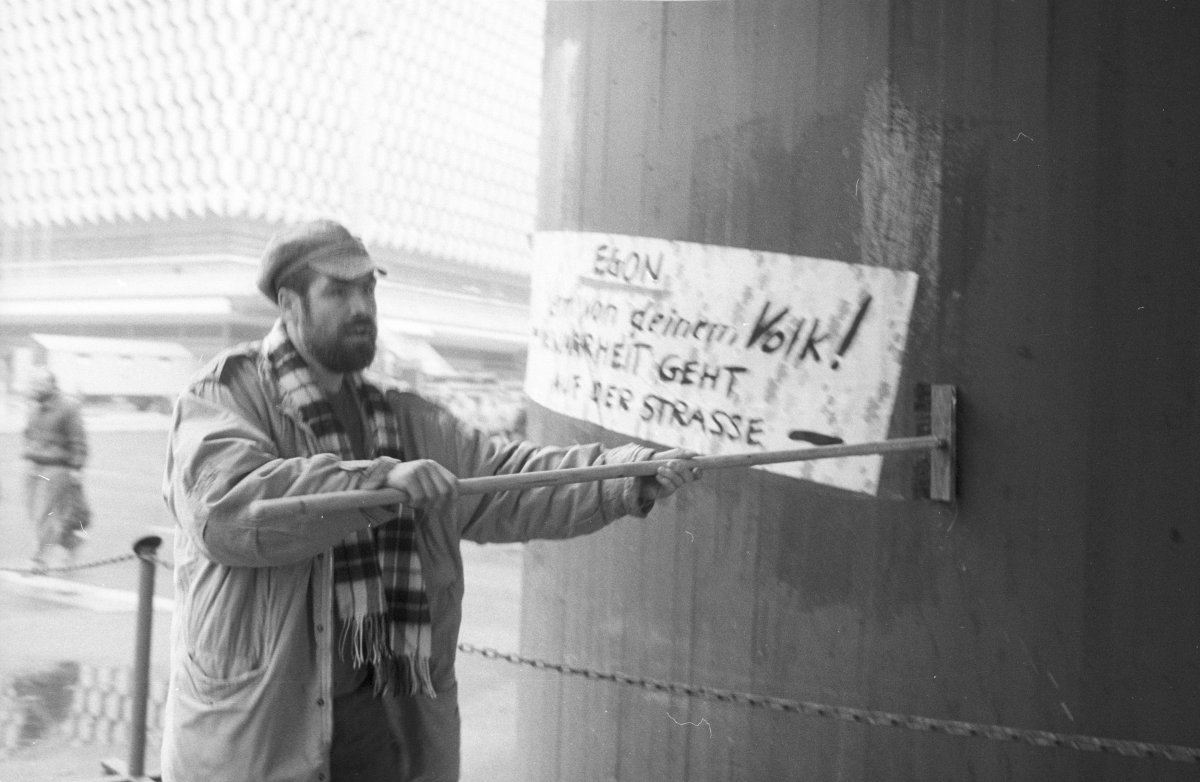 EGON
von deinem Volk!
GEHT
AUF DER STRASSE